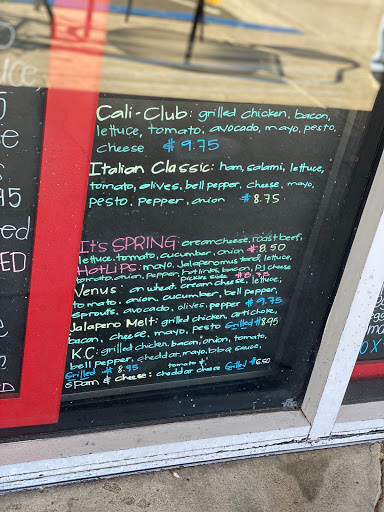 Cali-Club: grilled chicken, bacon,
lettuce, tomato, avocado, mayo, pesto,
cheese $9.75
Italian Classic: ham, salami, lettuce,
tomato, olives, bell pepper, cheese, mayo,
pesto, pepper, onion $8.75
It's SPRING: cream cheese, roast beef,
lettuce, tomato, cucumber, onion $8.50
HOTLIPS: mayo, Jalapeno mustard, lettuce,
tomato, onion, pepper, hotlinks, bacon, PJ cheese
pickle side $8.75
Venus: on wheat. cream cheese, lettuce,
tomato, onion, cucumber, bell pepper,
sprouts, avocado, olives, pepper $9.75
Jalapeno Melt: grilled chicken, artichoke,
bacon, cheese, mayo, pesto Grilled $8.95
K.C: grilled chicken, bacon, onion, tomato,
bell pepper, cheddar, mayo, bbq sauce,
Grilled $8.95
spam & cheese: cheddar cheese Grilled $6.50